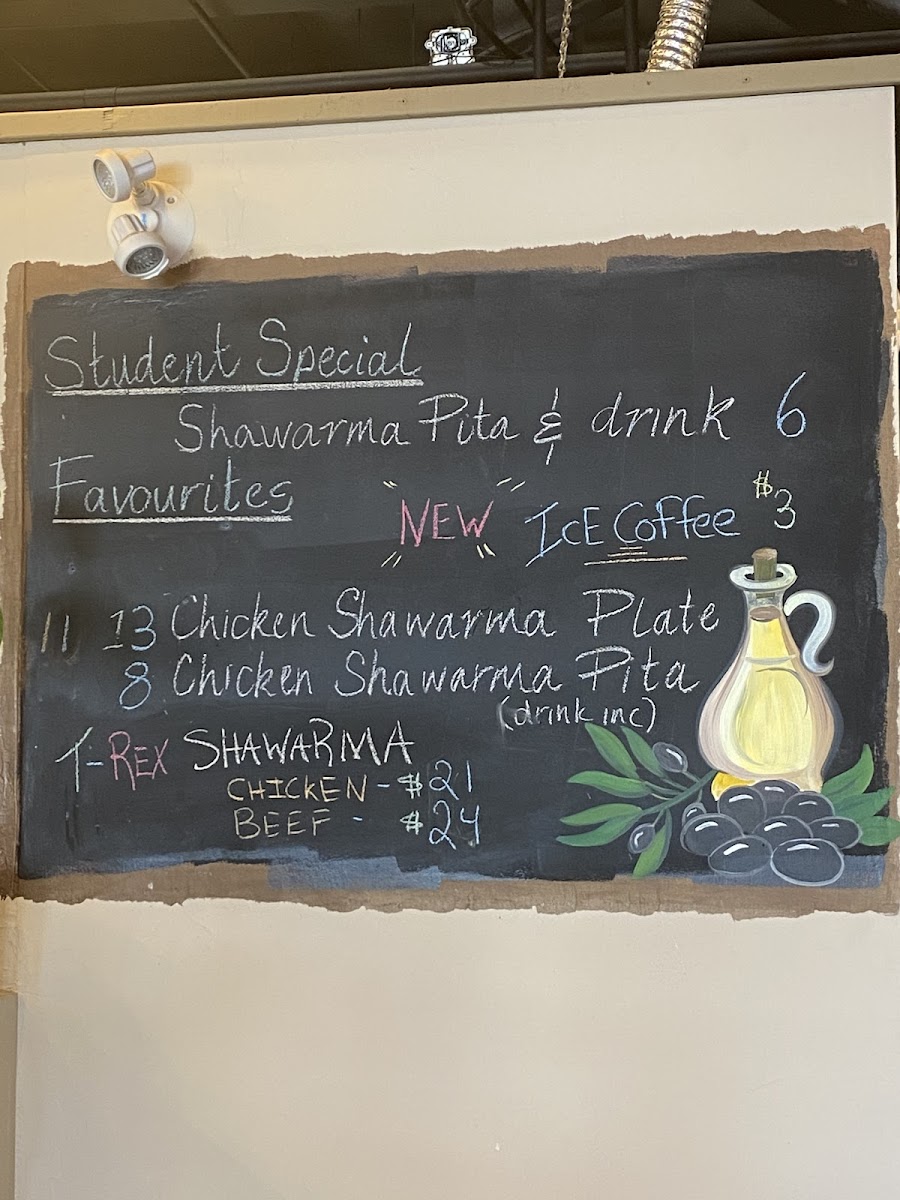 Student Special
Shawarma Pita & drink 6
Favourites
NEW ICE Coffee $3
11 13 Chicken Shawarma Plate
8 Chicken Shawarma Pita
(drink inc)
T-REX SHAWARMA
CHICKEN - $21
BEEF - $24